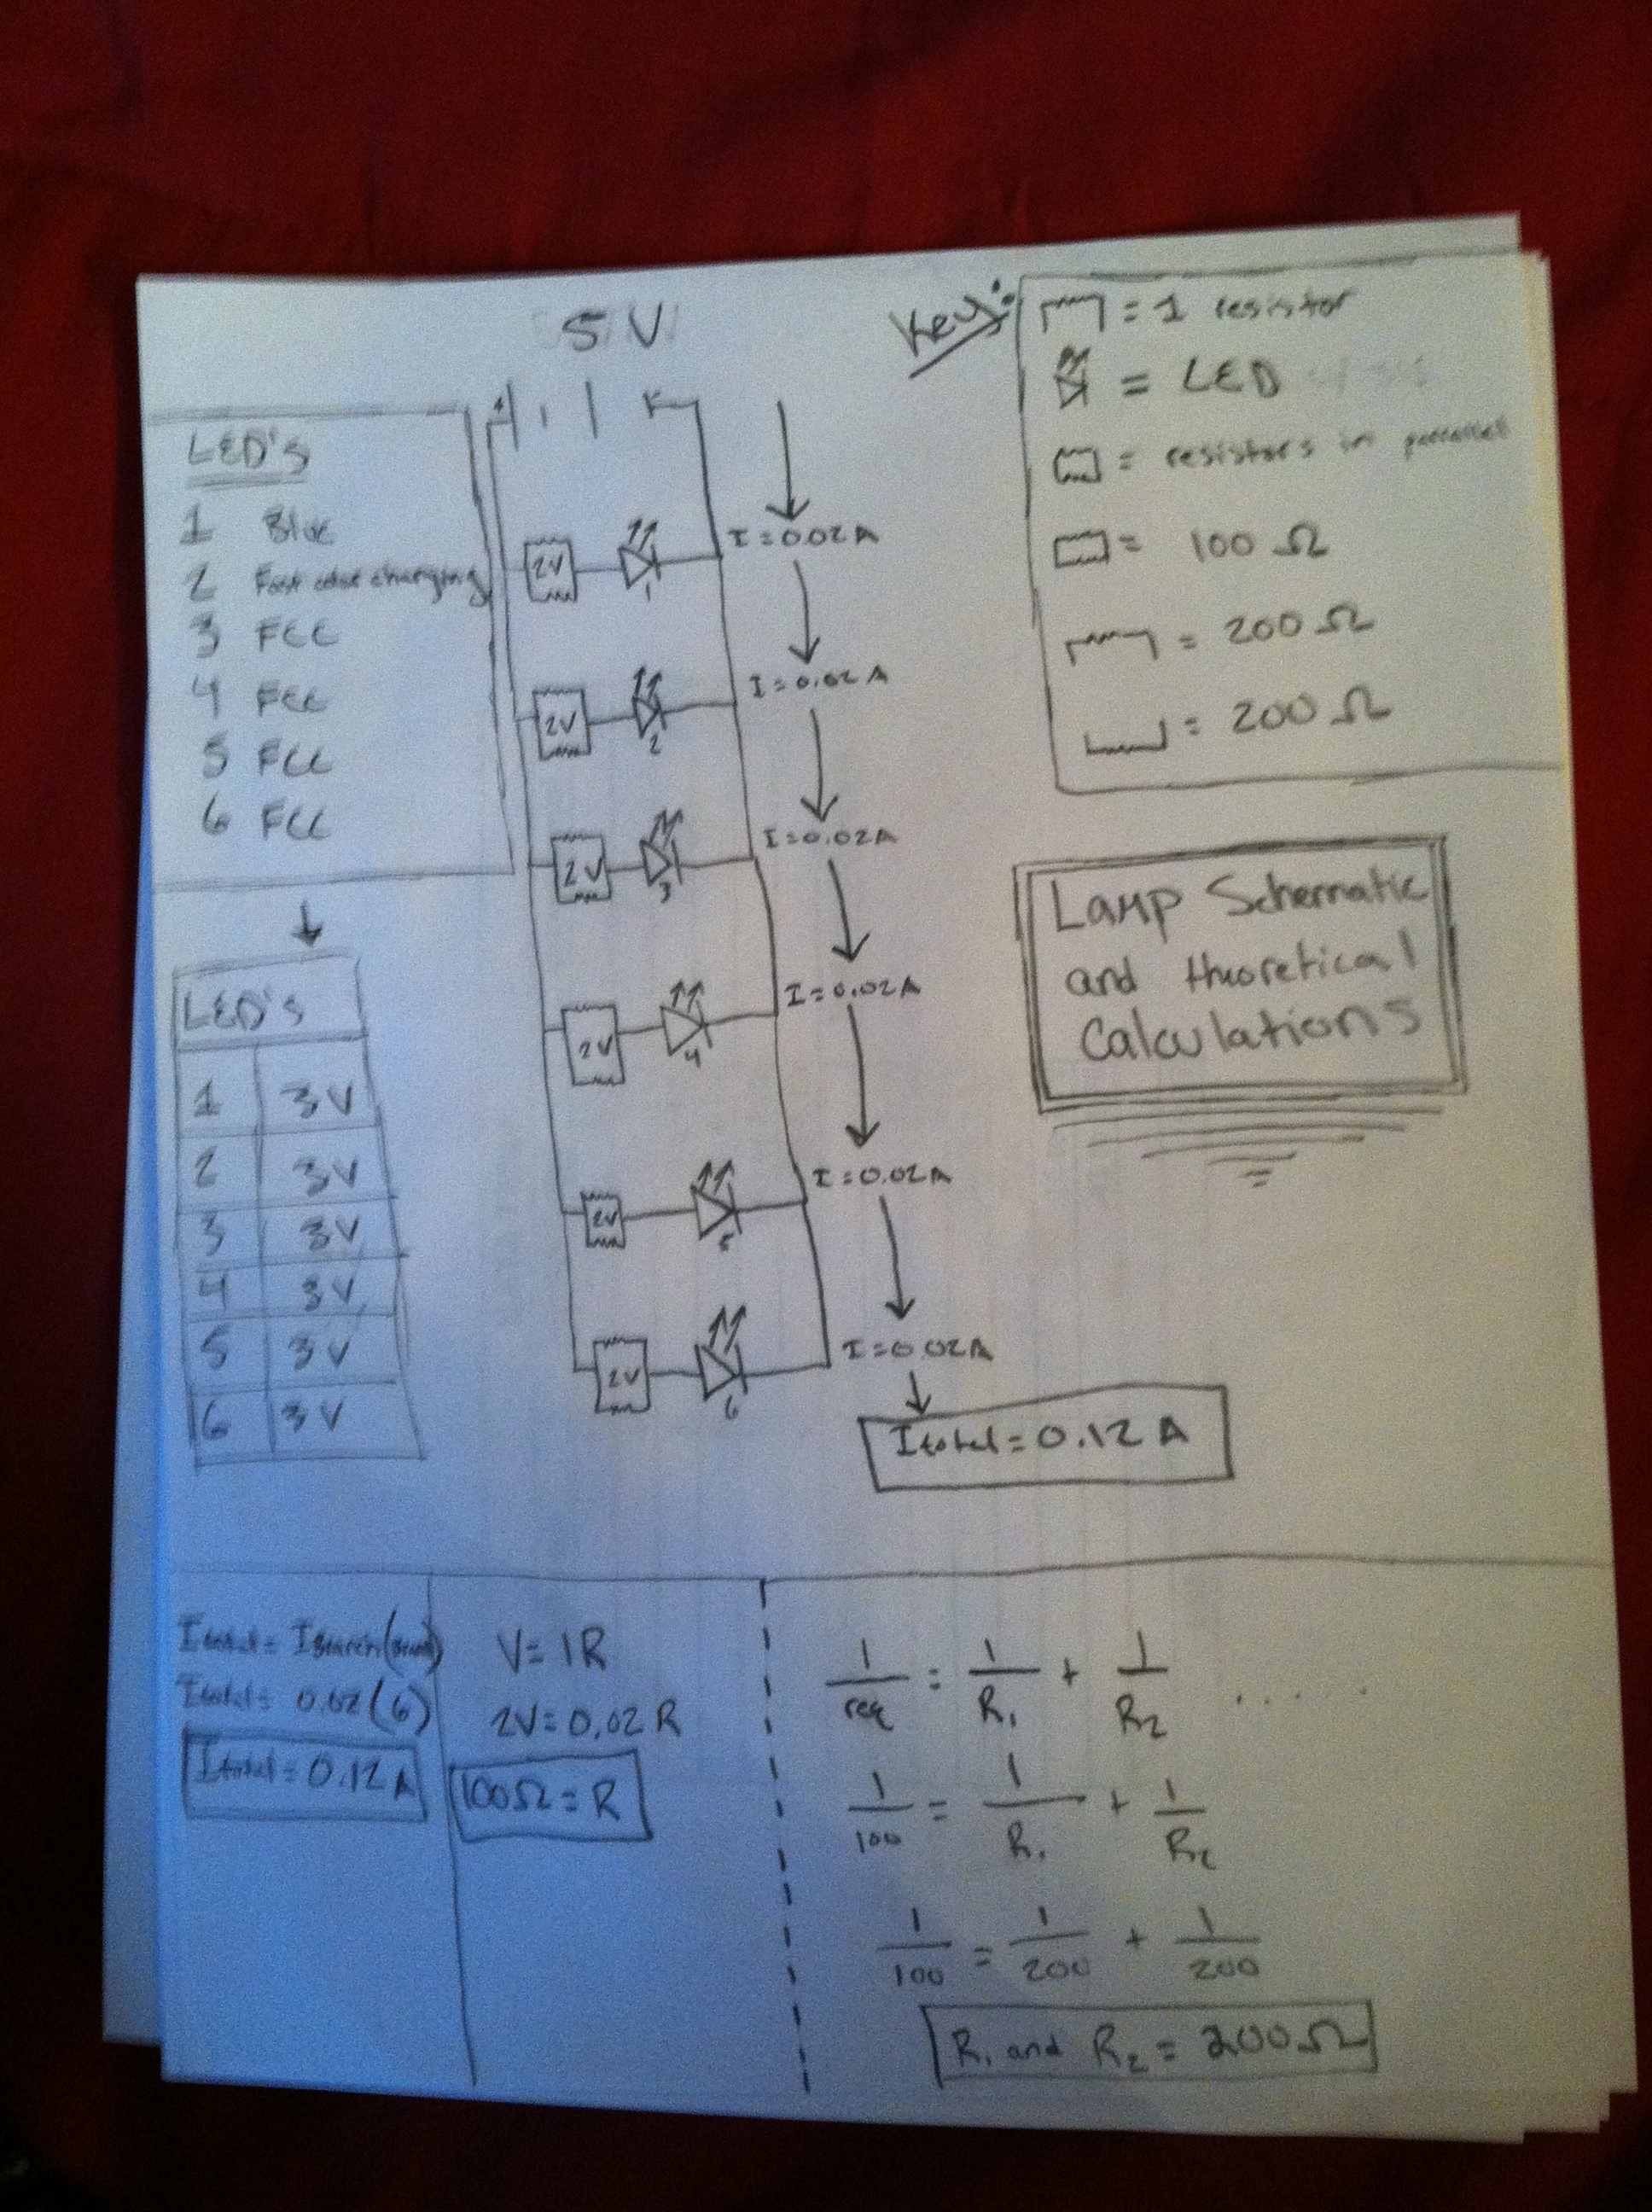 5 V
Key:
= 1 resistor
= LED
= resistors in parallel
= 100 Ω
= 200 Ω
= 200 Ω
LED's
1 Blue
2 Fast color changing
3 FCC
4 FCC
5 FCC
6 FCC
LED's
1 3V
2 3V
3 3V
4 3V
5 3V
6 3V
+
2V 1 I = 0.02 A
2V 2 I = 0.02 A
2V 3 I = 0.02 A
2V 4 I = 0.02 A
2V 5 I = 0.02 A
2V 6 I = 0.02 A
Itotal = 0.12 A
Lamp Schematic
and theoretical
Calculations
Itotal =
Itotal = 0.02 (6)
Itotal = 0.12 A
V = IR
2V = 0.02 R
100Ω = R
1/req = 1/R1 + 1/R2 .....
1/100 = 1/R1 + 1/R2
1/100 = 1/200 + 1/200
R1 and R2 = 200Ω